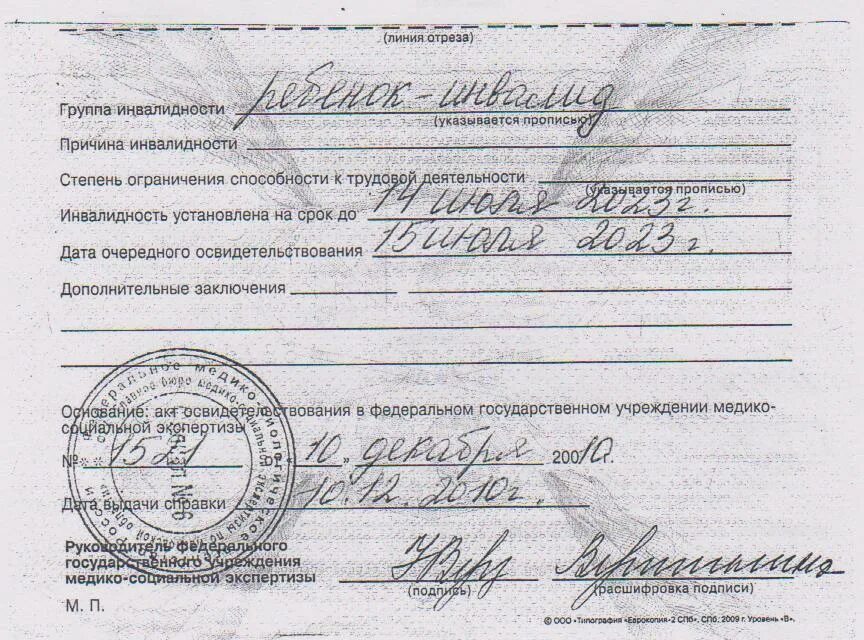 (линия отреза)
Группа инвалидности ребенок-инвалид
(указывается прописью)
Причина инвалидности
Степень ограничения способности к трудовой деятельности
(указывается прописью)
Инвалидность установлена на срок до 14 июля 2023 г.
Дата очередного освидетельствования 15 июля 2023 г.
Дополнительные заключения
Основание: акт освидетельствования в федеральном государственном учреждении медико-
социальной экспертизы
№ 1521 от «10» декабря 20010 г.
Дата выдачи справки 10.12.2010 г.
Руководитель федерального
государственного учреждения
медико-социальной экспертизы
(подпись) (расшифровка подписи)
М. П.
© ООО «Типография «Еврокопия-2 СПб», СПб, 2009 г. Уровень «В».